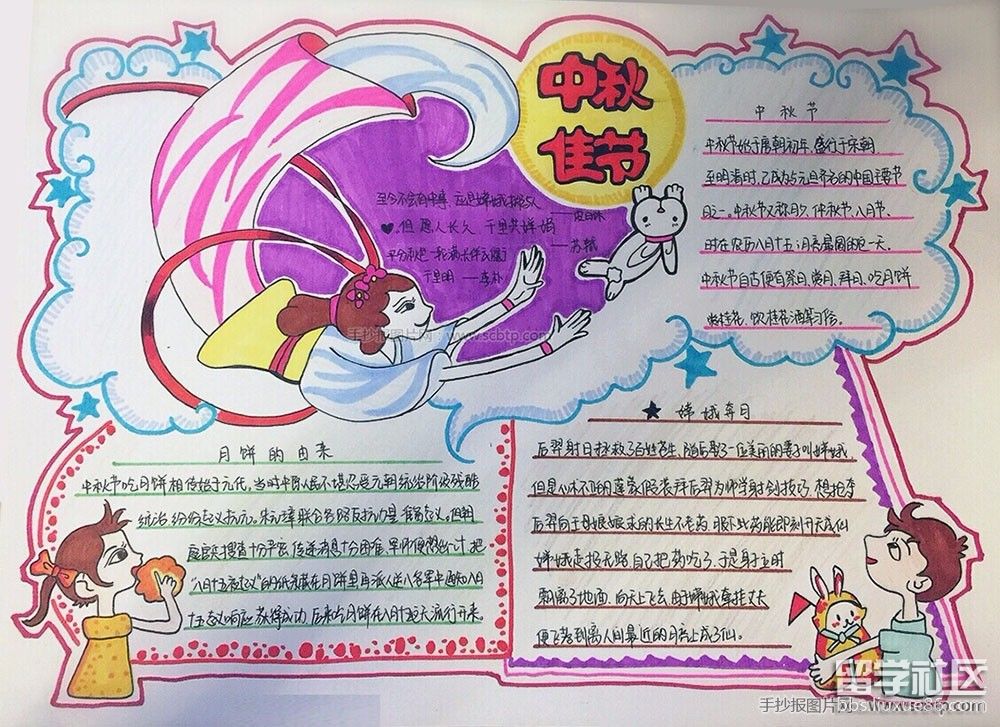 中秋
佳节
中秋节
中秋节始于唐朝初年,盛行于宋朝,
至明清时,已成为与元旦齐名的中国主要节
日之一。中秋节又称月夕、仲秋节、八月节。
时在农历八月十五;月亮最圆的一天。
中秋节自古便有祭月、赏月、拜月、吃月饼
赏桂花、饮桂花酒等习俗。
但愿人长久,千里共婵娟
——苏轼
手抄报图片网:www.scbtp.com
月饼的由来
中秋节吃月饼相传始于元代,当时中原人民不堪忍受元朝统治阶级残酷
统治 纷纷起义抗元。朱元璋联合各路反抗力量 准备起义。但朝
庭官兵搜查十分严密,传递消息十分困难,军师便想出一计,把
“八月十五夜起义”的纸条藏在月饼里 再派人送
起义响应 获得成功
嫦娥奔月
后羿射日拯救了百姓苍生,随后娶了一位美丽的妻子叫嫦娥
但是心术不正的蓬蒙假装拜后羿为师学射剑技巧,想抢夺
后羿向王母娘娘求的长生不老药,服下此药能即刻升天成仙
嫦娥走投无路 自己把药吃了,于是身子立时
飘离了地面,向天上飞去,由于嫦娥牵挂丈夫
便飞落到离人间最近的月亮上成了仙。
留学社区
手抄报图片网
bbs.liuxue86.com